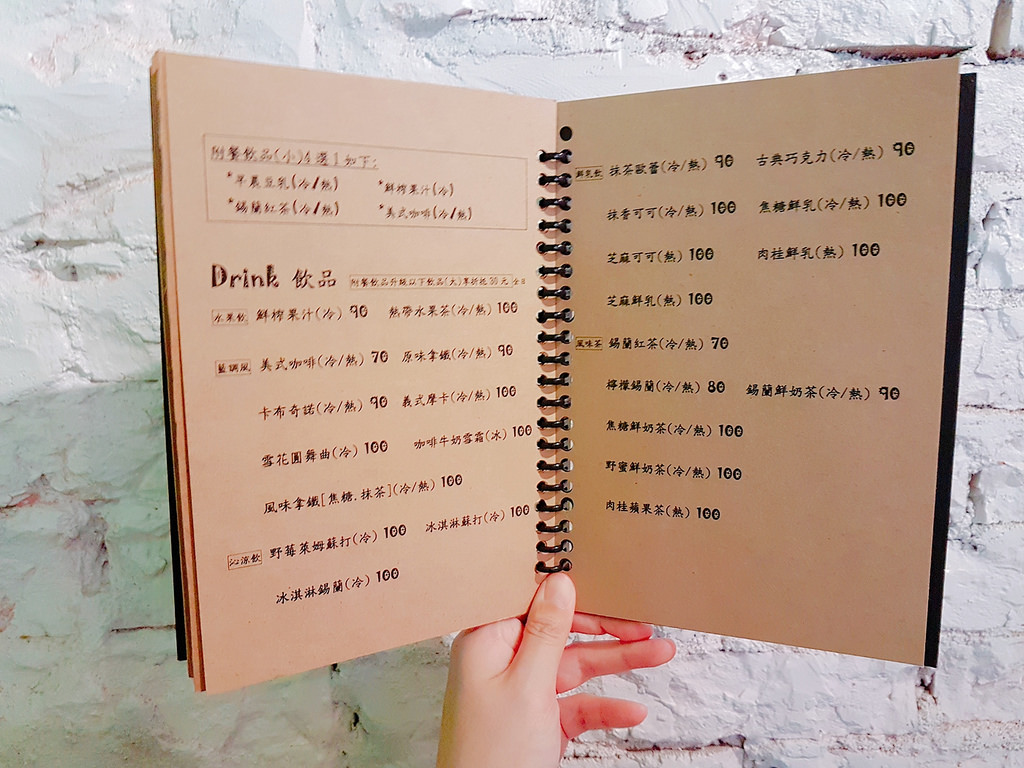 附餐飲品(小)4選1如下:
*平農豆乳(冷/熱) *鮮榨果汁(冷)
*錫蘭紅茶(冷/熱) *美式咖啡(冷/熱)
Drink 飲品 附餐飲品升級以下飲品(大)單折抵30元
水果飲 鮮榨果汁(冷) 90 熱帶水果茶(冷/熱) 100
藍調風 美式咖啡(冷/熱) 70 原味拿鐵(冷/熱) 90
卡布奇諾(冷/熱) 90 義式摩卡(冷/熱) 100
雪花圓舞曲(冷) 100 咖啡牛奶雪霜(冰) 100
風味拿鐵[焦糖.抹茶](冷/熱) 100
沁涼飲 野莓萊姆蘇打(冷) 100 冰淇淋蘇打(冷) 100
冰淇淋錫蘭(冷) 100
鮮乳飲 抹茶歐蕾(冷/熱) 90 古典巧克力(冷/熱) 90
抹香可可(冷/熱) 100 焦糖鮮乳(冷/熱) 100
芝麻可可(熱) 100 肉桂鮮乳(冷/熱) 100
芝麻鮮乳(熱) 100
風味茶 錫蘭紅茶(冷/熱) 70
檸檬錫蘭(冷/熱) 80 錫蘭鮮奶茶(冷/熱) 90
焦糖鮮奶茶(冷/熱) 100
野蜜鮮奶茶(冷/熱) 100
肉桂蘋果茶(熱) 100